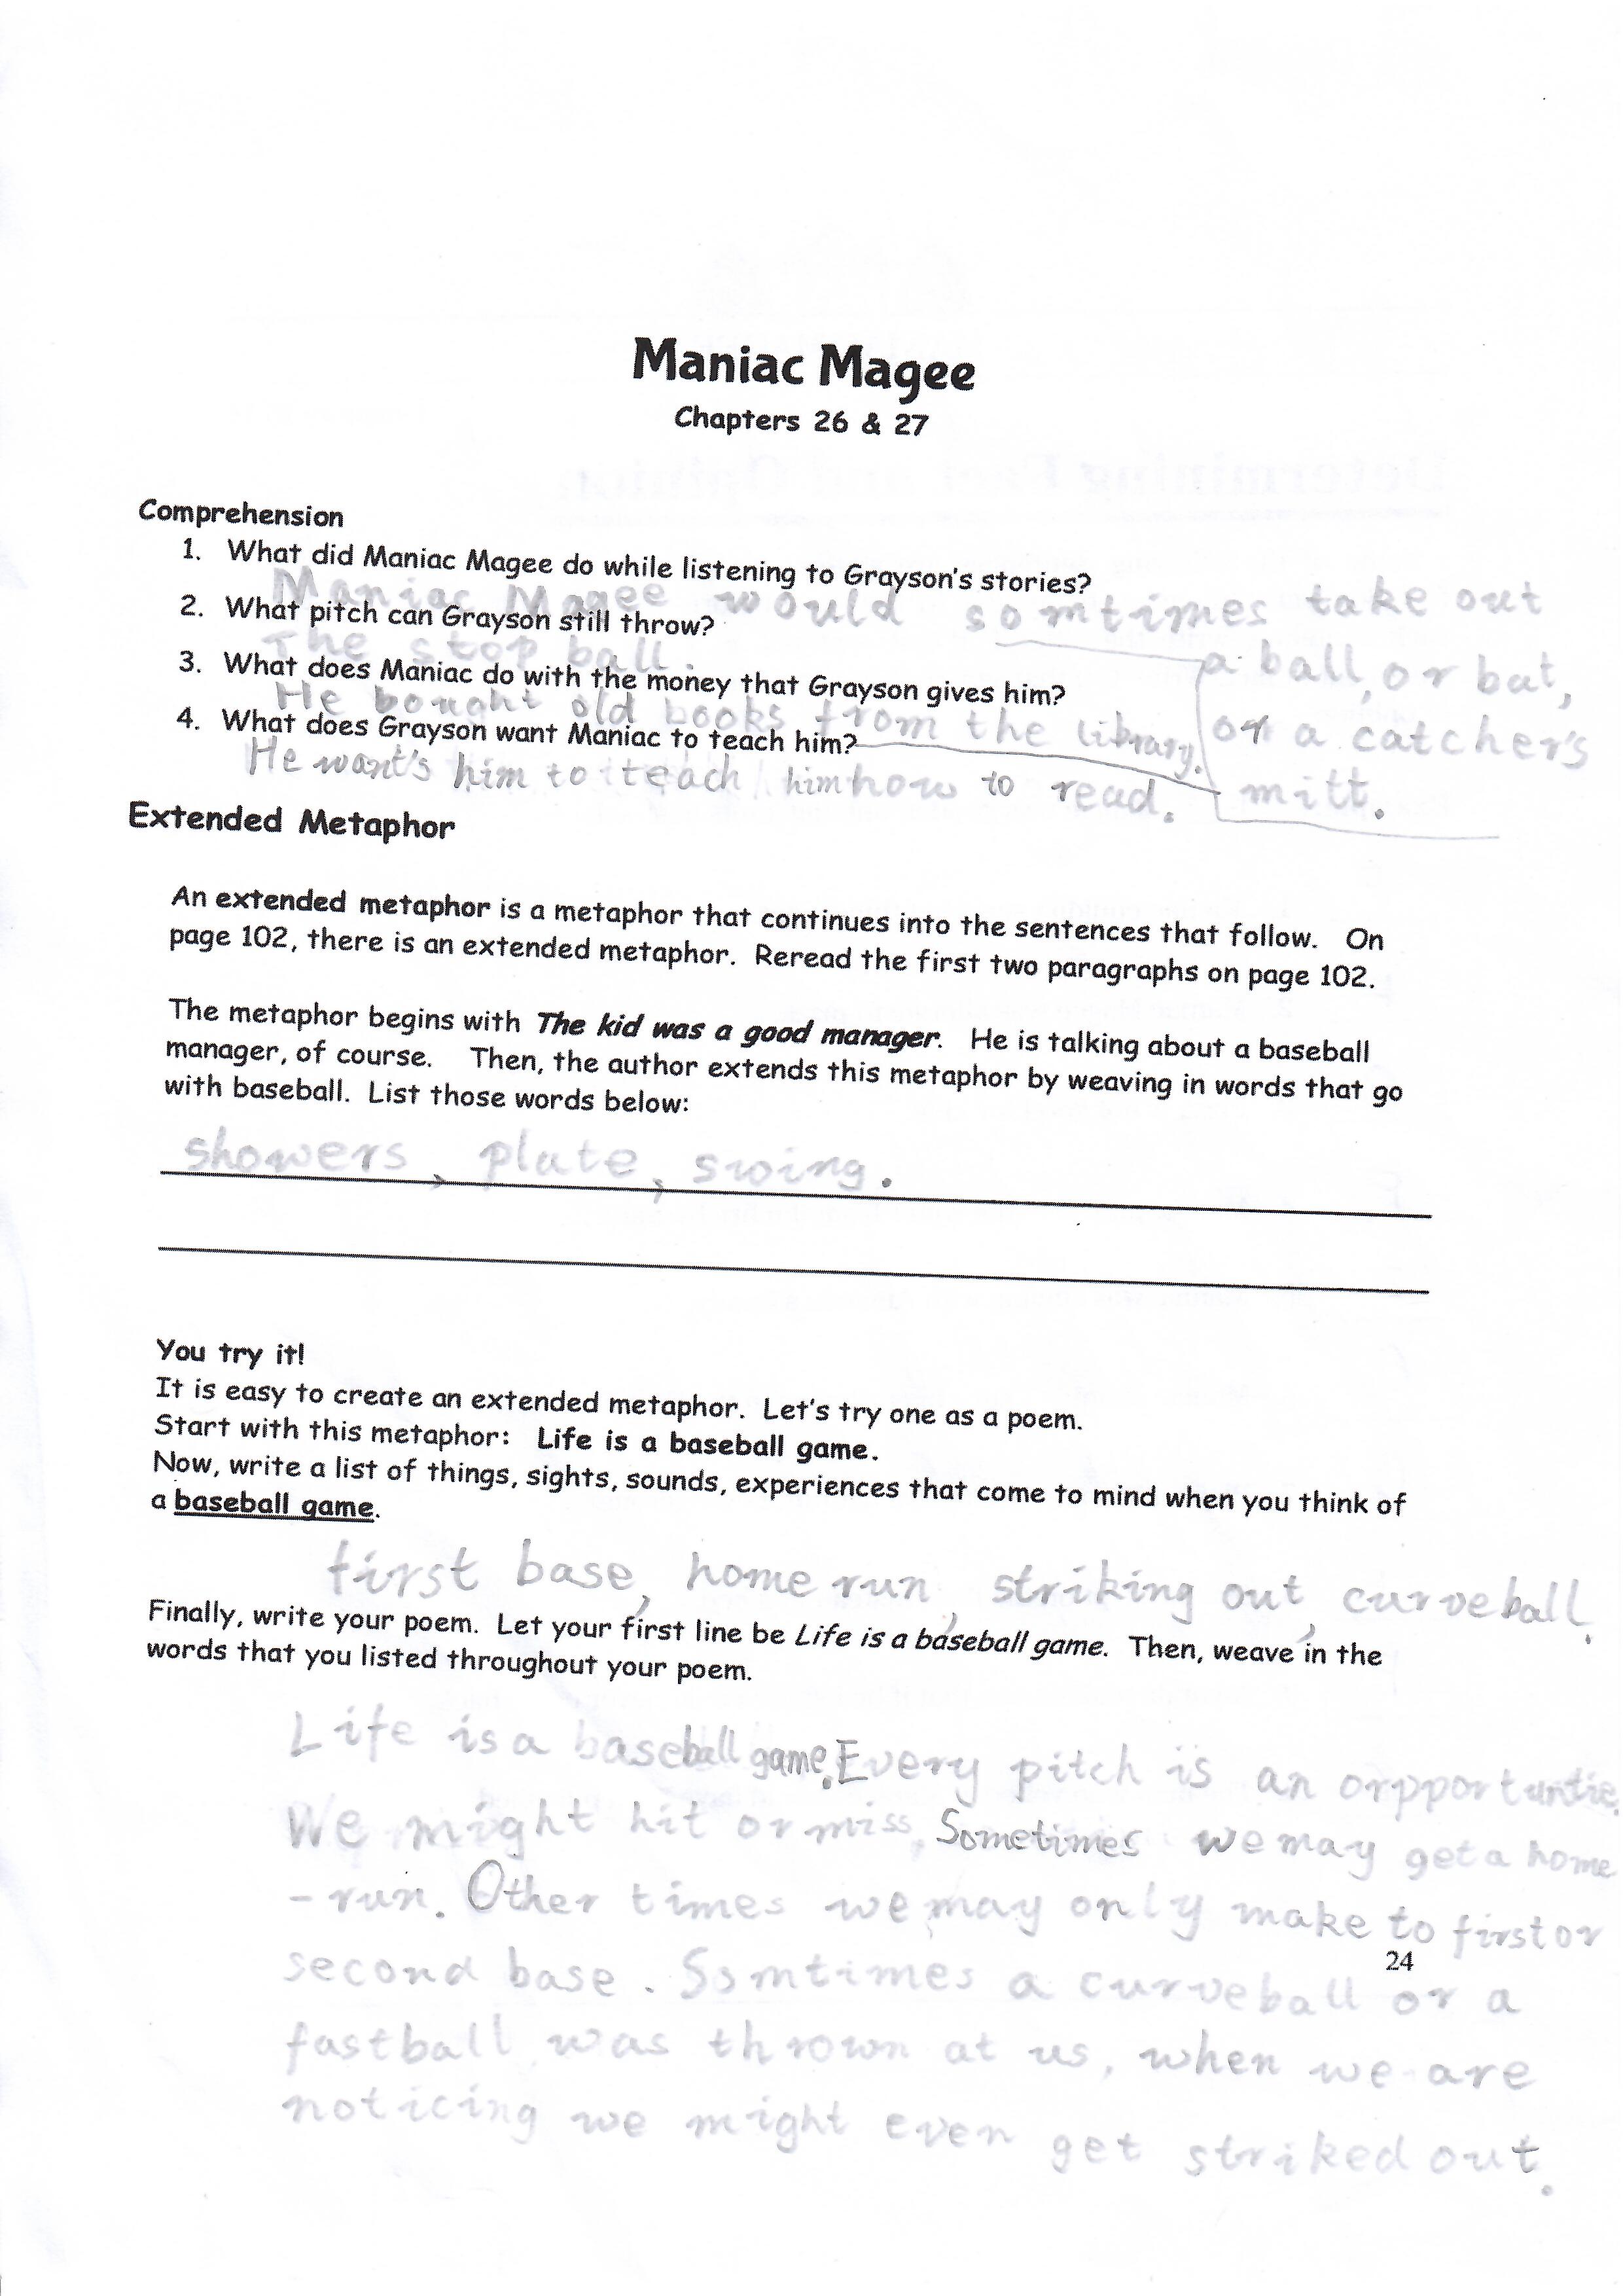 Maniac Magee
Chapters 26 & 27
Comprehension
1. What did Maniac Magee do while listening to Grayson's stories?
Maniac Magee would somtimes take out
a ball, or bat,
or a catcher's
mitt.
2. What pitch can Grayson still throw?
The stop ball.
3. What does Maniac do with the money that Grayson gives him?
He bought old books from the library.
4. What does Grayson want Maniac to teach him?
He want's him to teach him how to read.
Extended Metaphor
An extended metaphor is a metaphor that continues into the sentences that follow. On
page 102, there is an extended metaphor. Reread the first two paragraphs on page 102.
The metaphor begins with The kid was a good manager. He is talking about a baseball
manager, of course. Then, the author extends this metaphor by weaving in words that go
with baseball. List those words below:
showers, plate, swing.
You try it!
It is easy to create an extended metaphor. Let's try one as a poem.
Start with this metaphor: Life is a baseball game.
Now, write a list of things, sights, sounds, experiences that come to mind when you think of
a baseball game.
first base, home run, striking out, curveball.
Finally, write your poem. Let your first line be Life is a baseball game. Then, weave in the
words that you listed throughout your poem.
Life is a baseball game. Every pitch is an orpportuntie.
We might hit or miss, Sometimes we may get a home
-run. Other times we may only make to first or
second base. Somtimes a curveball or a
fastball was thrown at us, when we are
noticing we might even get striked out.
24